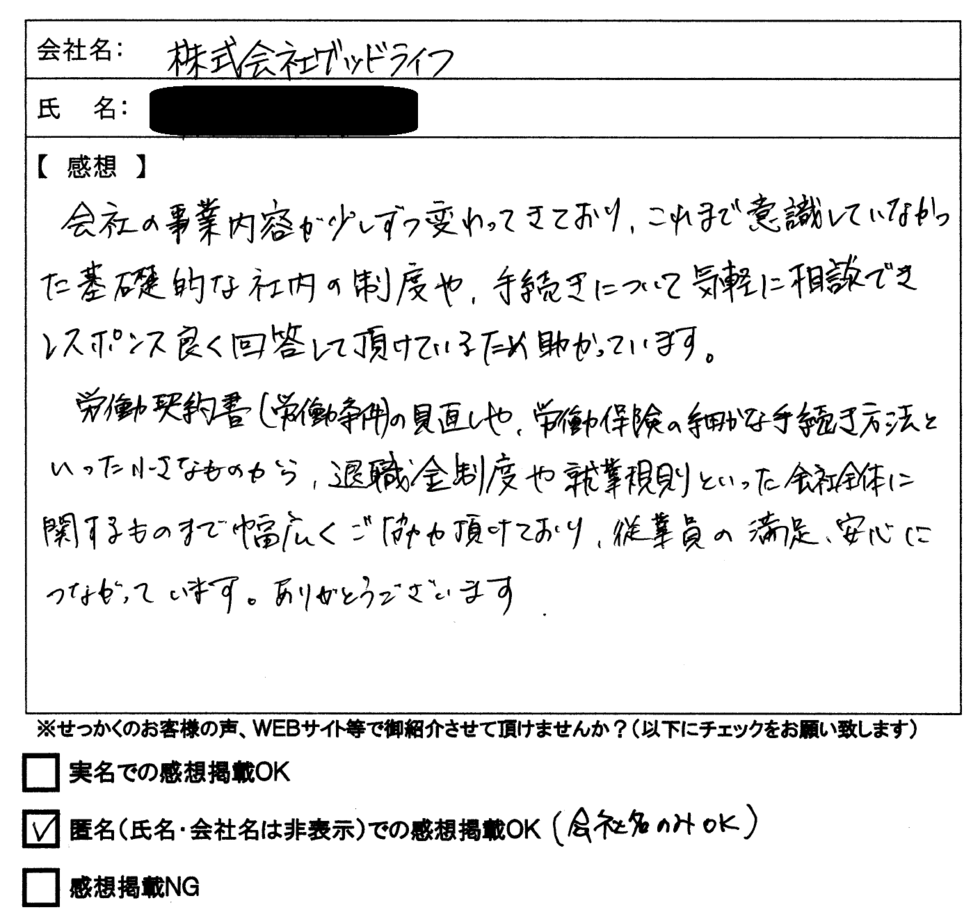 会社名: 株式会社グッドライフ
氏 名:
【 感想 】
会社の事業内容が少しずつ変わってきており、これまで意識していなかっ
た基礎的な社内の制度や、手続きについて気軽に相談でき
レスポンス良く回答して頂けているため助かっています。
労働契約書(労働条件)の見直しや、労働保険の細かな手続き方法と
いった小さなものから、退職金制度や就業規則といった会社全体に
関するものまで幅広くご協力頂けており、従業員の満足、安心に
つながっています。ありがとうございます
※せっかくのお客様の声、WEBサイト等で御紹介させて頂けませんか?(以下にチェックをお願い致します)
実名での感想掲載OK
匿名(氏名・会社名は非表示)での感想掲載OK (会社名のみOK)
感想掲載NG